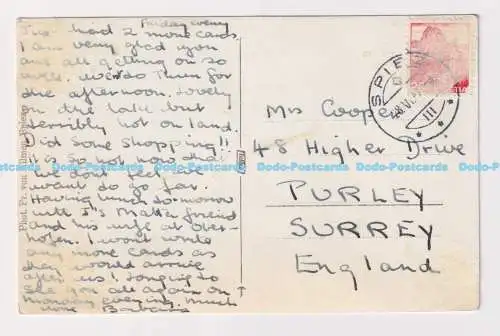 Friday eveng
Just had 2 more cards
I am very glad you
are all getting on so
well. We do Thun for
the afternoon. Lovely
on the lake but
terribly hot on land.
Did some shopping!!
It is so hot now that
we don't feel
want to go far.
Having lunch to-morrow
with J's Matter friend
and his wife at Ober-
hofen. I won't write
any more cards as
they would arrive
after us! Longing to
see you all again on
Monday evening. Much
love Barbara
Phot. Fr. von
SPIEZ
III
Mrs Cooper
48 Higher Drive
PURLEY
SURREY
England
Dodo-Postcards Dodo-Postcards Dodo-Postcards Dodo-Postcards Dodo-Postcards